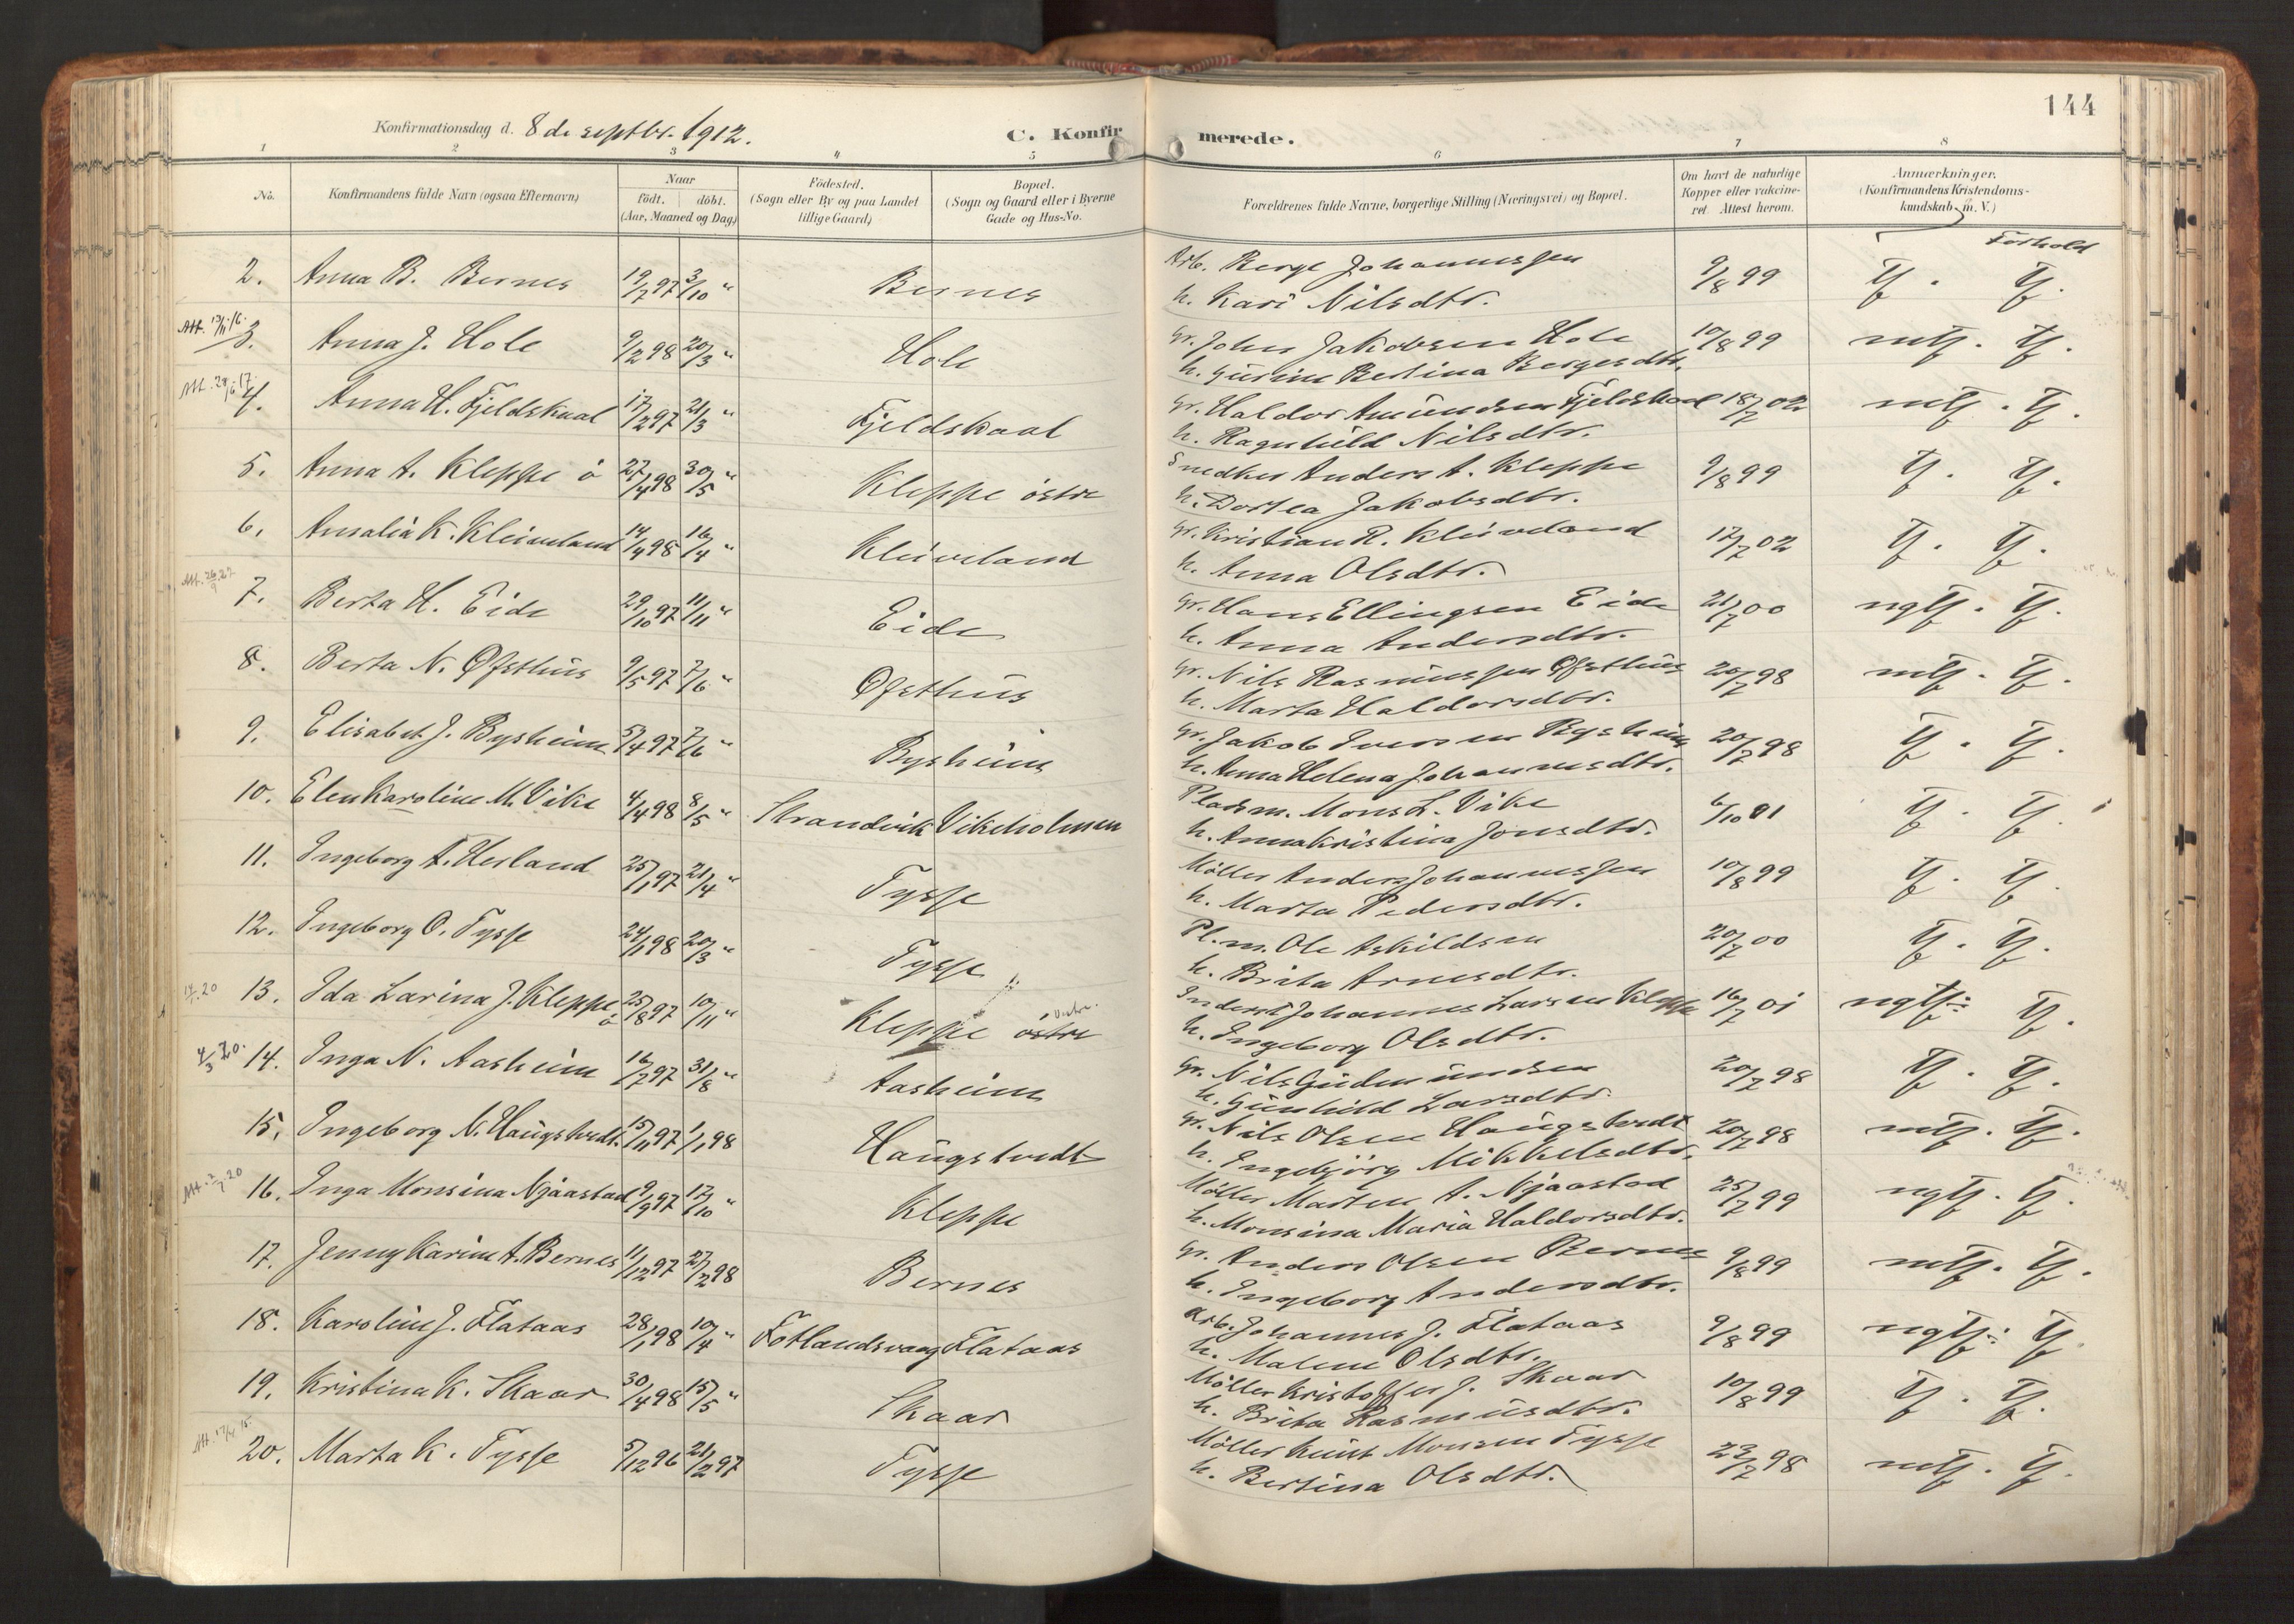 144
Konfirmationsdag d. 8de septbr. 1912. C. Konfirmerede.
1 2 3 4 5 6 7 8
No. Konfirmandens fulde Navn (ogsaa Efternavn) Naar födt. döbt. (Aar, Maaned og Dag) Födested. (Sogn eller By og paa Landet tillige Gaard) Bopæl. (Sogn og Gaard eller i Byerne Gade og Hus-No. Forældrenes fulde Navne, borgerlige Stilling (Næringsvei) og Bopæl. Om havt de naturlige Kopper eller vakcineret. Attest herom. Anmærkninger. (Konfirmandens Kristendomskundskab m. V.)
Forhold
2. Anna B. Bernes 19/7 97 3/10 " Bernes Arb. Berge Johannessen 9/8 99 Tf. Tf.
h. Kari Nilsdtr.
Att. 13/11 16.
3. Anna J. Hole 9/2 98 20/3 " Hole Gr. John Jakobsen Hole 10/8 99 mtf. Tf.
h. Gurine Bertina Bergesdtr.
4. Anna H. Fjeldskaal 17/2 97 21/3 " Fjeldskaal Gr. Haldor Amundsen Fjeldskaal 18/7 02 mtf. Tf.
h. Ragnhild Nilsdtr.
5. Anna A. Kleppe ö 27/4 98 30/5 " Kleppe östre Snedker Anders A. Kleppe 9/8 99 Tf. Tf.
h. Dortea Jakobsdtr.
6. Amalia K. Kleiveland 14/4 98 16/4 " Kleiveland Gr. Kristian R. Kleiveland 17/7 02 Tf. Tf.
h. Anna Olsdtr.
Att. 26/9 27
7. Berta H. Eide 29/10 97 11/11 " Eide Gr. Hans Ellingsen Eide 21/7 00 ngtf. Tf.
h. Anna Andersdtr.
8. Berta N. Øfsthus 9/5 97 7/6 " Øfsthus Gr. Nils Rasmussen Øfsthus 20/7 98 mtf. Tf.
h. Marta Haldorsdtr.
9. Elisabet J. Bysheim 5/4 97 7/6 " Bysheim Gr. Jakob Iversen Bysheim 20/7 98 Tf. Tf.
h. Anna Helena Johannesdtr.
10. Elen Karoline M. Vike 4/4 98 8/5 " Strandvik Vikeholmen Pladsm. Mons L. Vike 6/10 01 Tf. Tf.
h. Anna Kristina Jonsdtr.
11. Ingeborg A. Herland 25/1 97 21/4 " Tysse Möller Anders Johannessen 10/8 99 Tf. Tf.
h. Marta Pedersdtr.
12. Ingeborg O. Tysse 24/1 98 20/3 " Tysse Pl.m. Ole Askildsen 20/7 00 Tf. Tf.
h. Brita Arnesdtr.
20
13. Ida Larina J. Kleppe ö 25/8 97 10/11 " Kleppe östre Vestre. Inderst Johannes Larsen Kleppe 16/7 01 ngtf÷ Tf.
h. Ingeborg Olsdtr.
4/3 20.
14. Inga N. Aasheim 16/7 97 31/8 " Aasheim Gr. Nils Gudmundsen 20/7 98 Tf. Tf.
h. Gunhild Larsdtr.
15. Ingeborg N. Haugstvedt 15/11 97 1/1 98 Haugstvedt Gr. Nils Olsen Haugstvedt 20/7 98 mtf. Tf.
h. Ingebjörg Mikkelsdtr.
16. Inga Monsina Njaastad 9/9 97 17/10 " Kleppe Möller Marten A. Njaastad 25/7 99 ngtf. Tf.
h. Monsina Maria Haldorsdtr.
17. Jenny Karine A. Bernes 11/12 97 27/2 98 Bernes Gr. Anders Olsen Bernes 9/8 99 mtf. Tf.
h. Ingeborg Andersdtr.
18. Karoline J. Flataas 28/1 98 10/4 " Fotlandsvaag Flataas Arb. Johannes J. Flataas 9/8 99 ngtf÷ Tf.
h. Malene Olsdtr.
19. Kristina K. Skaar 30/4 98 15/5 " Skaar Möller Kristoffer J. Skaar 10/8 99 Tf. Tf.
h. Brita Rasmusdtr.
20. Marta K. Tysse 5/12 96 21/2 97 Tysse Möller Knut Monsen Tysse 22/7 98 mtf. Tf.
h. Bertina Olsdtr.